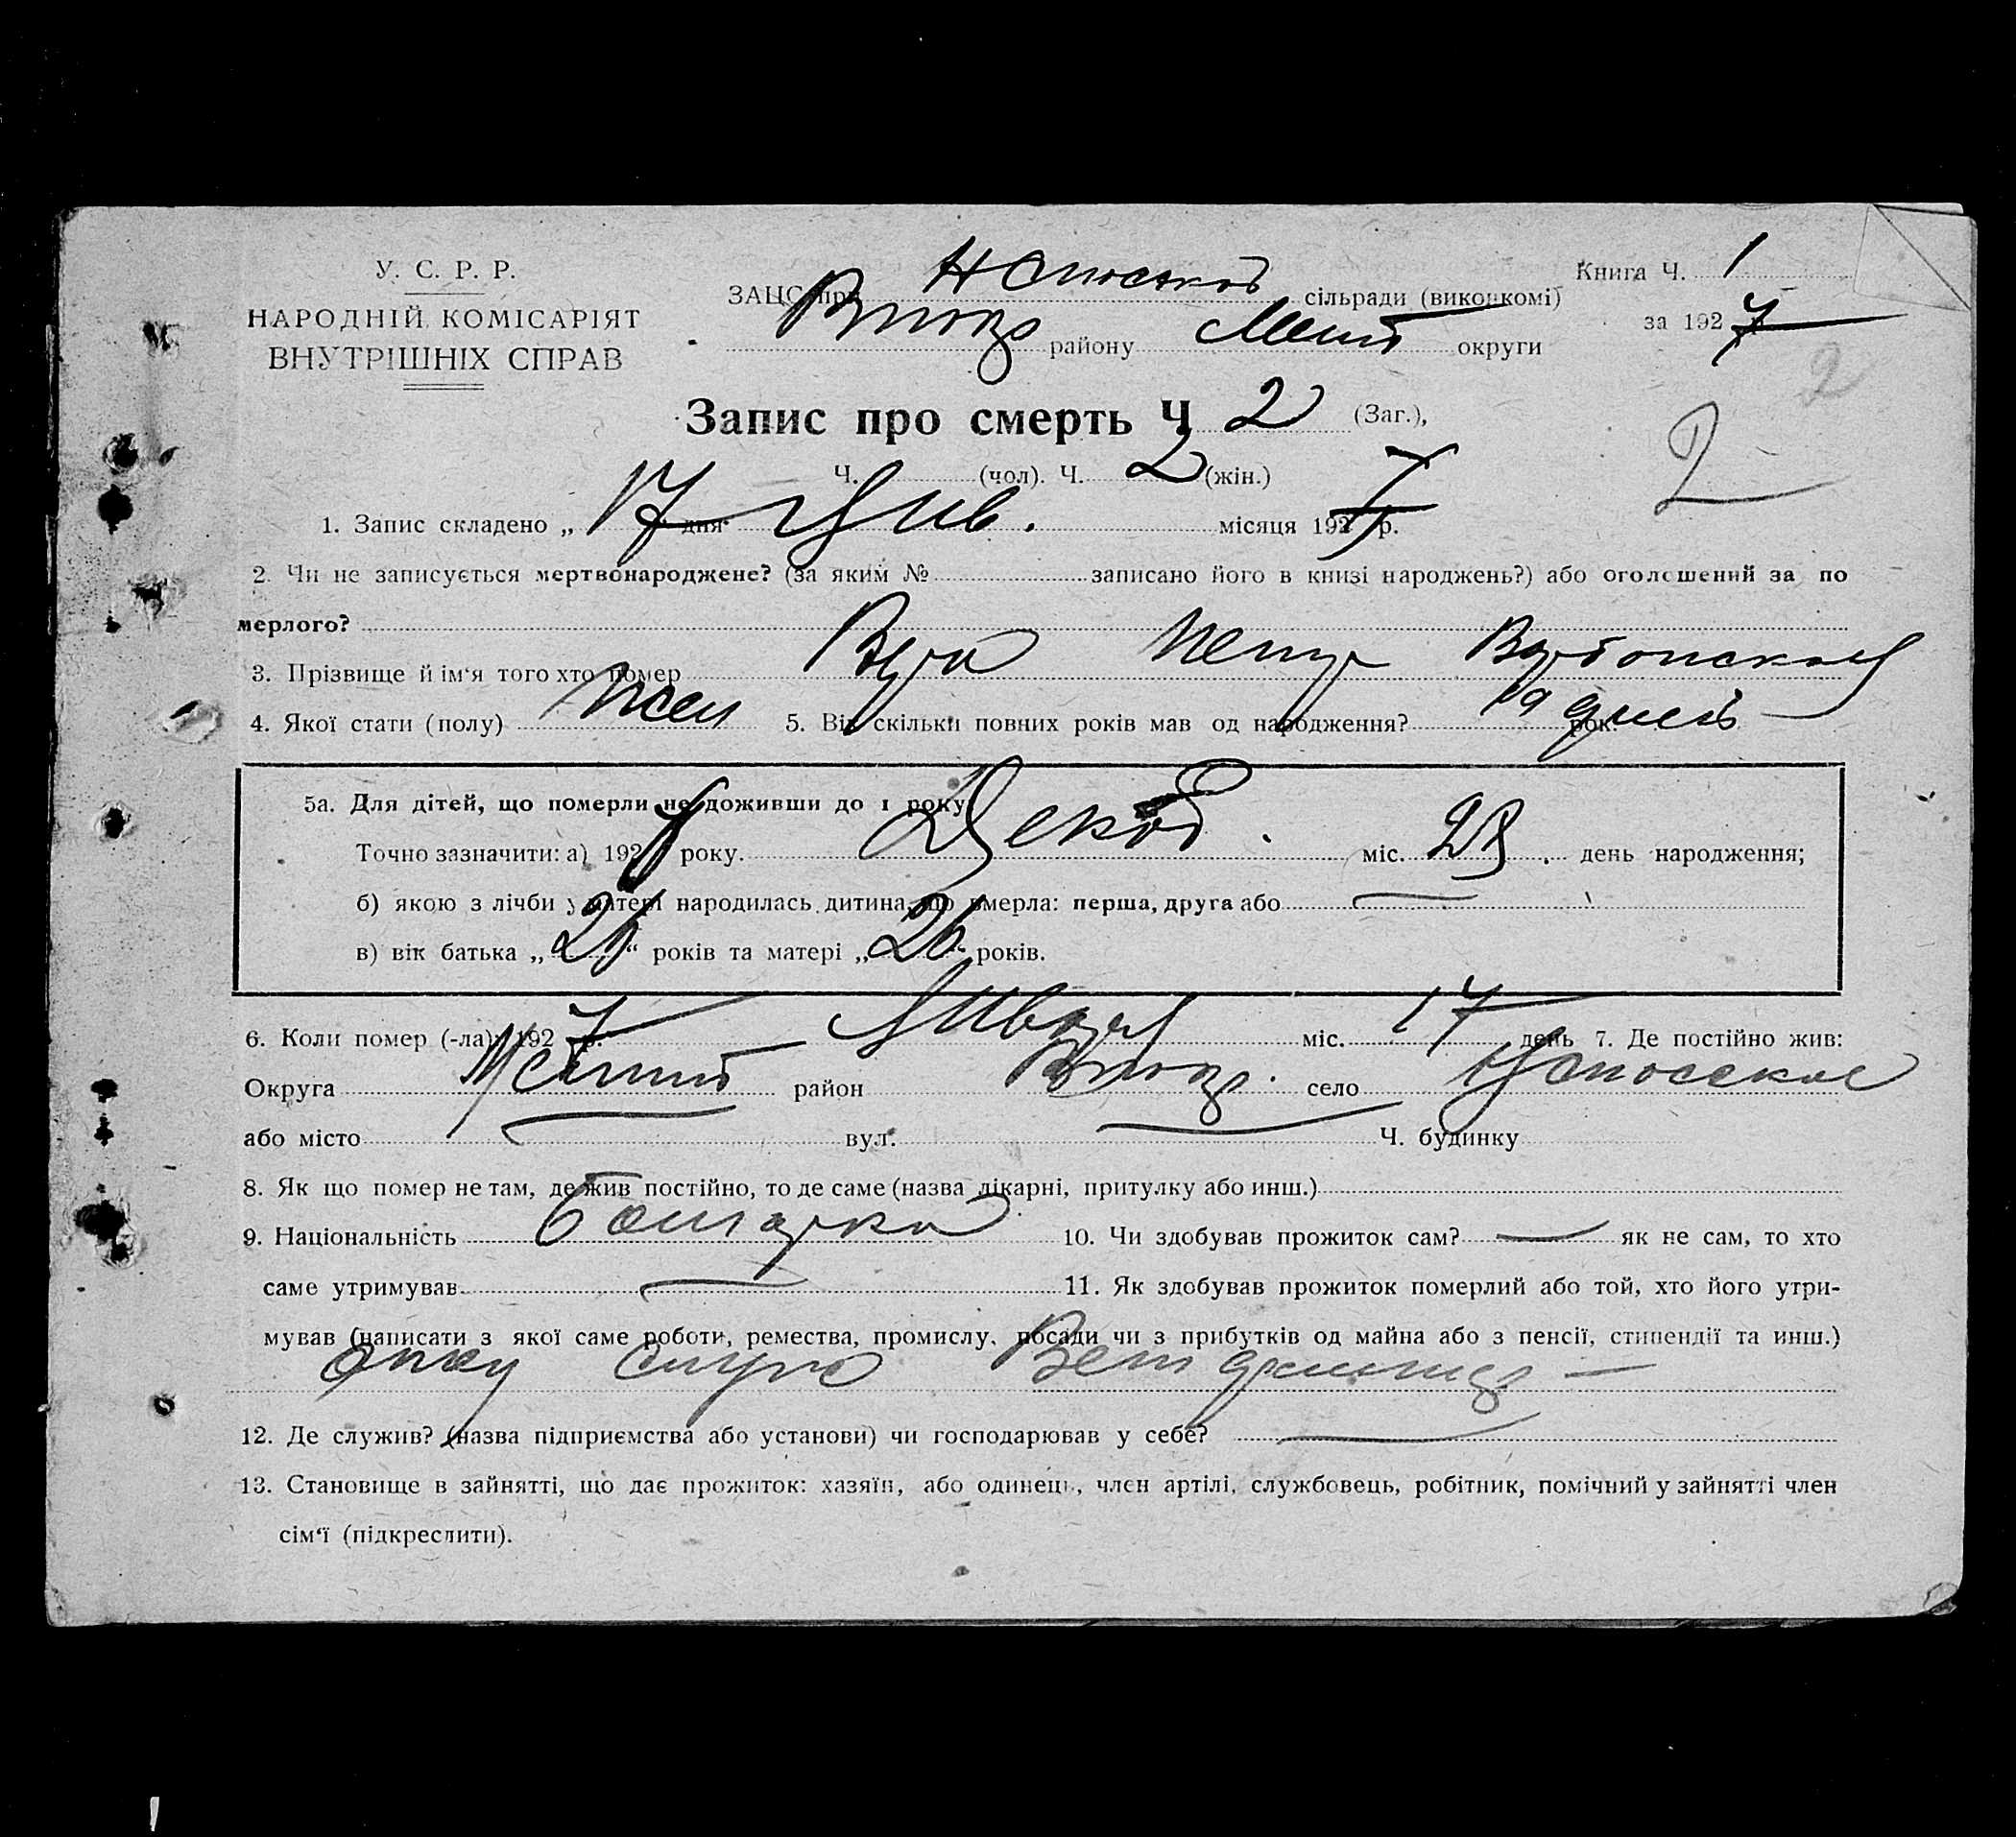 У. С. Р. Р.
НАРОДНІЙ КОМІСАРІЯТ
ВНУТРІШНІХ СПРАВ
ЗАЦС при сільради (виконкомі)
району Мелит округи
Книга Ч. 1
за 1927
2
Запис про смерть Ч 2 (Заг.),
Ч. (чол). Ч. 2 (жін.)
2
1. Запис складено „ 17 дня Янв. місяця 1927 р.
2. Чи не записується мертвонароджене? (за яким № записано його в книзі народжень?) або оголошений за по
мерлого?
3. Прізвище й ім'я того хто помер Вера
4. Якої стати (полу) жен 5. Вік скільки повних років мав од народження? 19 дней рок.
5а. Для дітей, що померли не доживши до 1 року
Точно зазначити: а) 1926 року. Декаб. міс. 28. день народження;
б) якою з лічби у матері народилась дитина, що вмерла: перша, друга або —
в) вік батька „26“ років та матері „26“ років.
6. Коли помер (-ла): 1927 р. Января міс. 17 день 7. Де постійно жив:
Округа Мелит район село
або місто вул. Ч. будинку
8. Як що помер не там, де жив постійно, то де саме (назва лікарні, притулку або инш.)
9. Національність болгарка 10. Чи здобував прожиток сам? — як не сам, то хто
саме утримував — 11. Як здобував прожиток померлий або той, хто його утри-
мував (написати з якої саме роботи, ремества, промислу, посади чи з прибутків од майна або з пенсії, стипендії та инш.)
12. Де служив? (назва підприємства або установи) чи господарював у себе? —
13. Становище в зайнятті, що дає прожиток: хазяїн, або одинець, член артілі, службовець, робітник, помічний у зайнятті член
сім'ї (підкреслити).